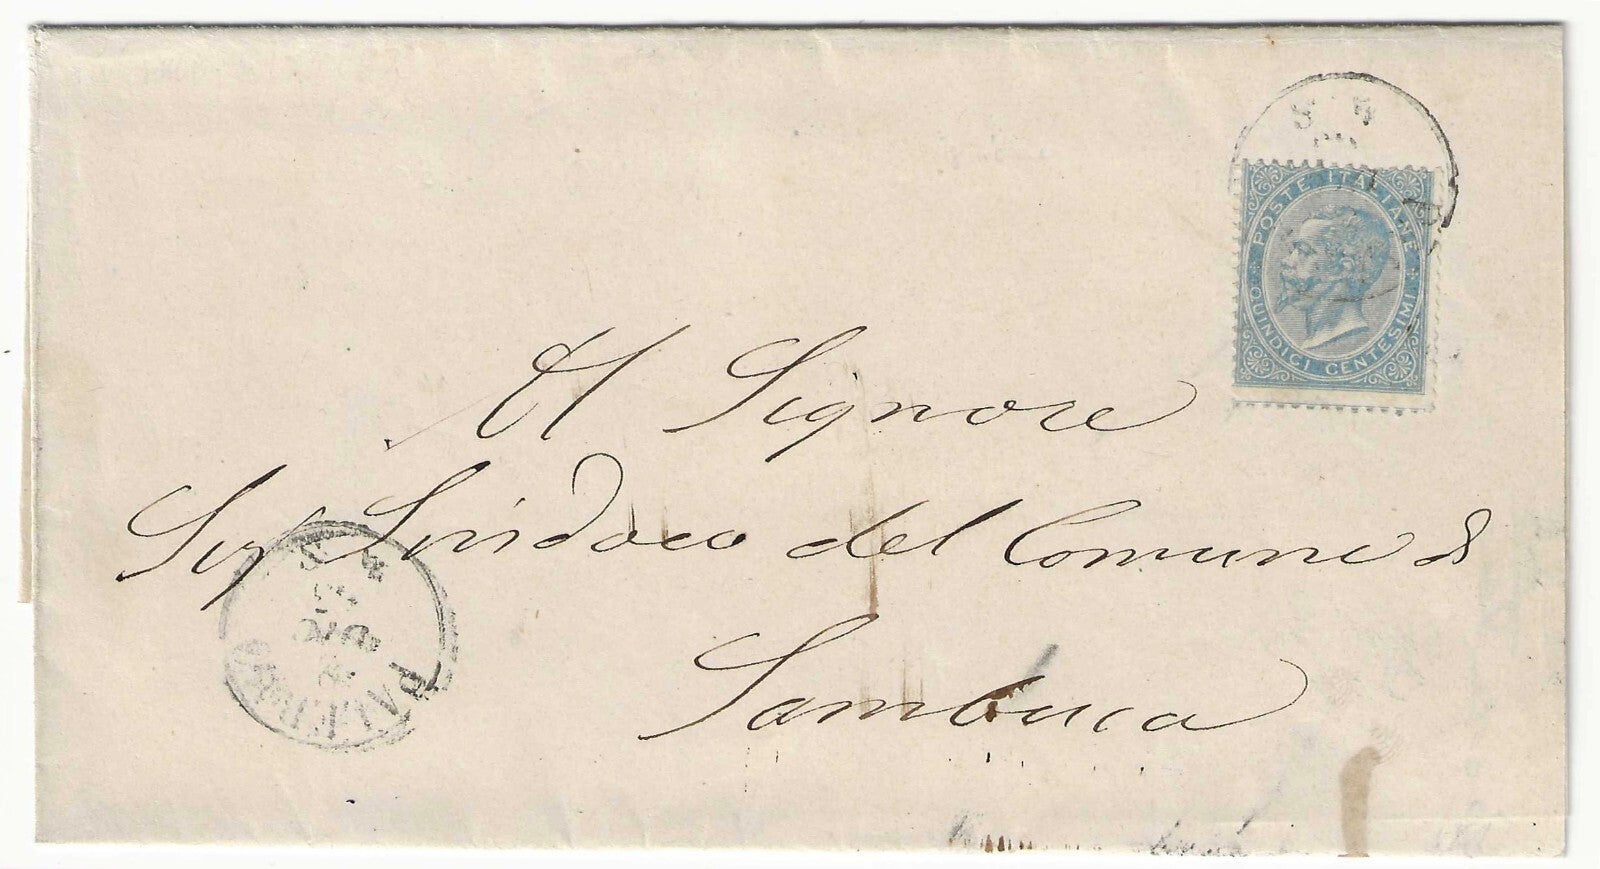 POSTE ITALIANE
QUINDICI CENTESIMI
Al Signore
Sig. Sindaco del Comune di
Sambuca
PALERMO
DIC